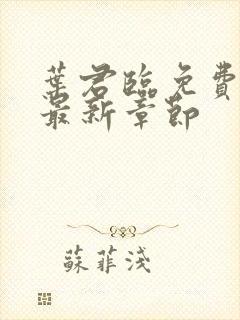 葉君臨免費
最新章節
蘇菲淺